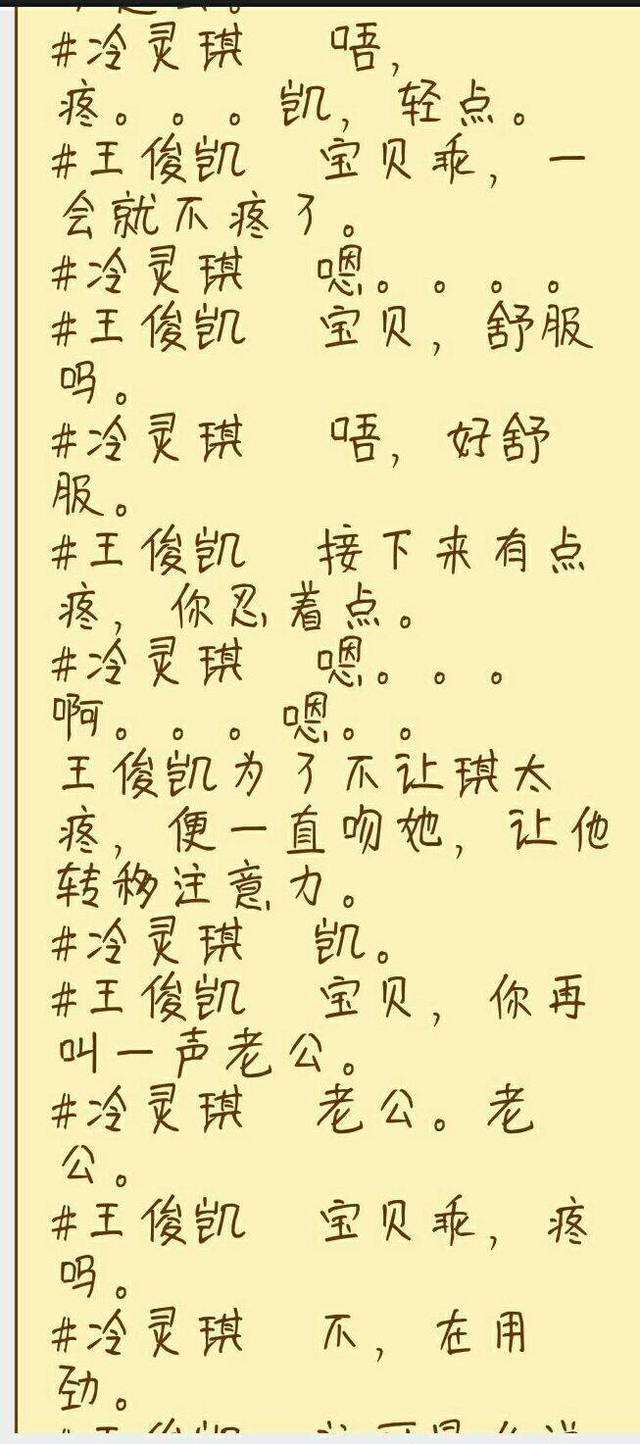 #冷灵琪 唔,
疼。。。凯,轻点。
#王俊凯 宝贝乖,一
会就不疼了。
#冷灵琪 嗯。。。。
#王俊凯 宝贝,舒服
吗。
#冷灵琪 唔,好舒
服。
#王俊凯 接下来有点
疼,你忍着点。
#冷灵琪 嗯。。。
啊。。。嗯。。
王俊凯为了不让琪太
疼,便一直吻她,让他
转移注意力。
#冷灵琪 凯。
#王俊凯 宝贝,你再
叫一声老公。
#冷灵琪 老公。老
公。
#王俊凯 宝贝乖,疼
吗。
#冷灵琪 不,在用
劲。